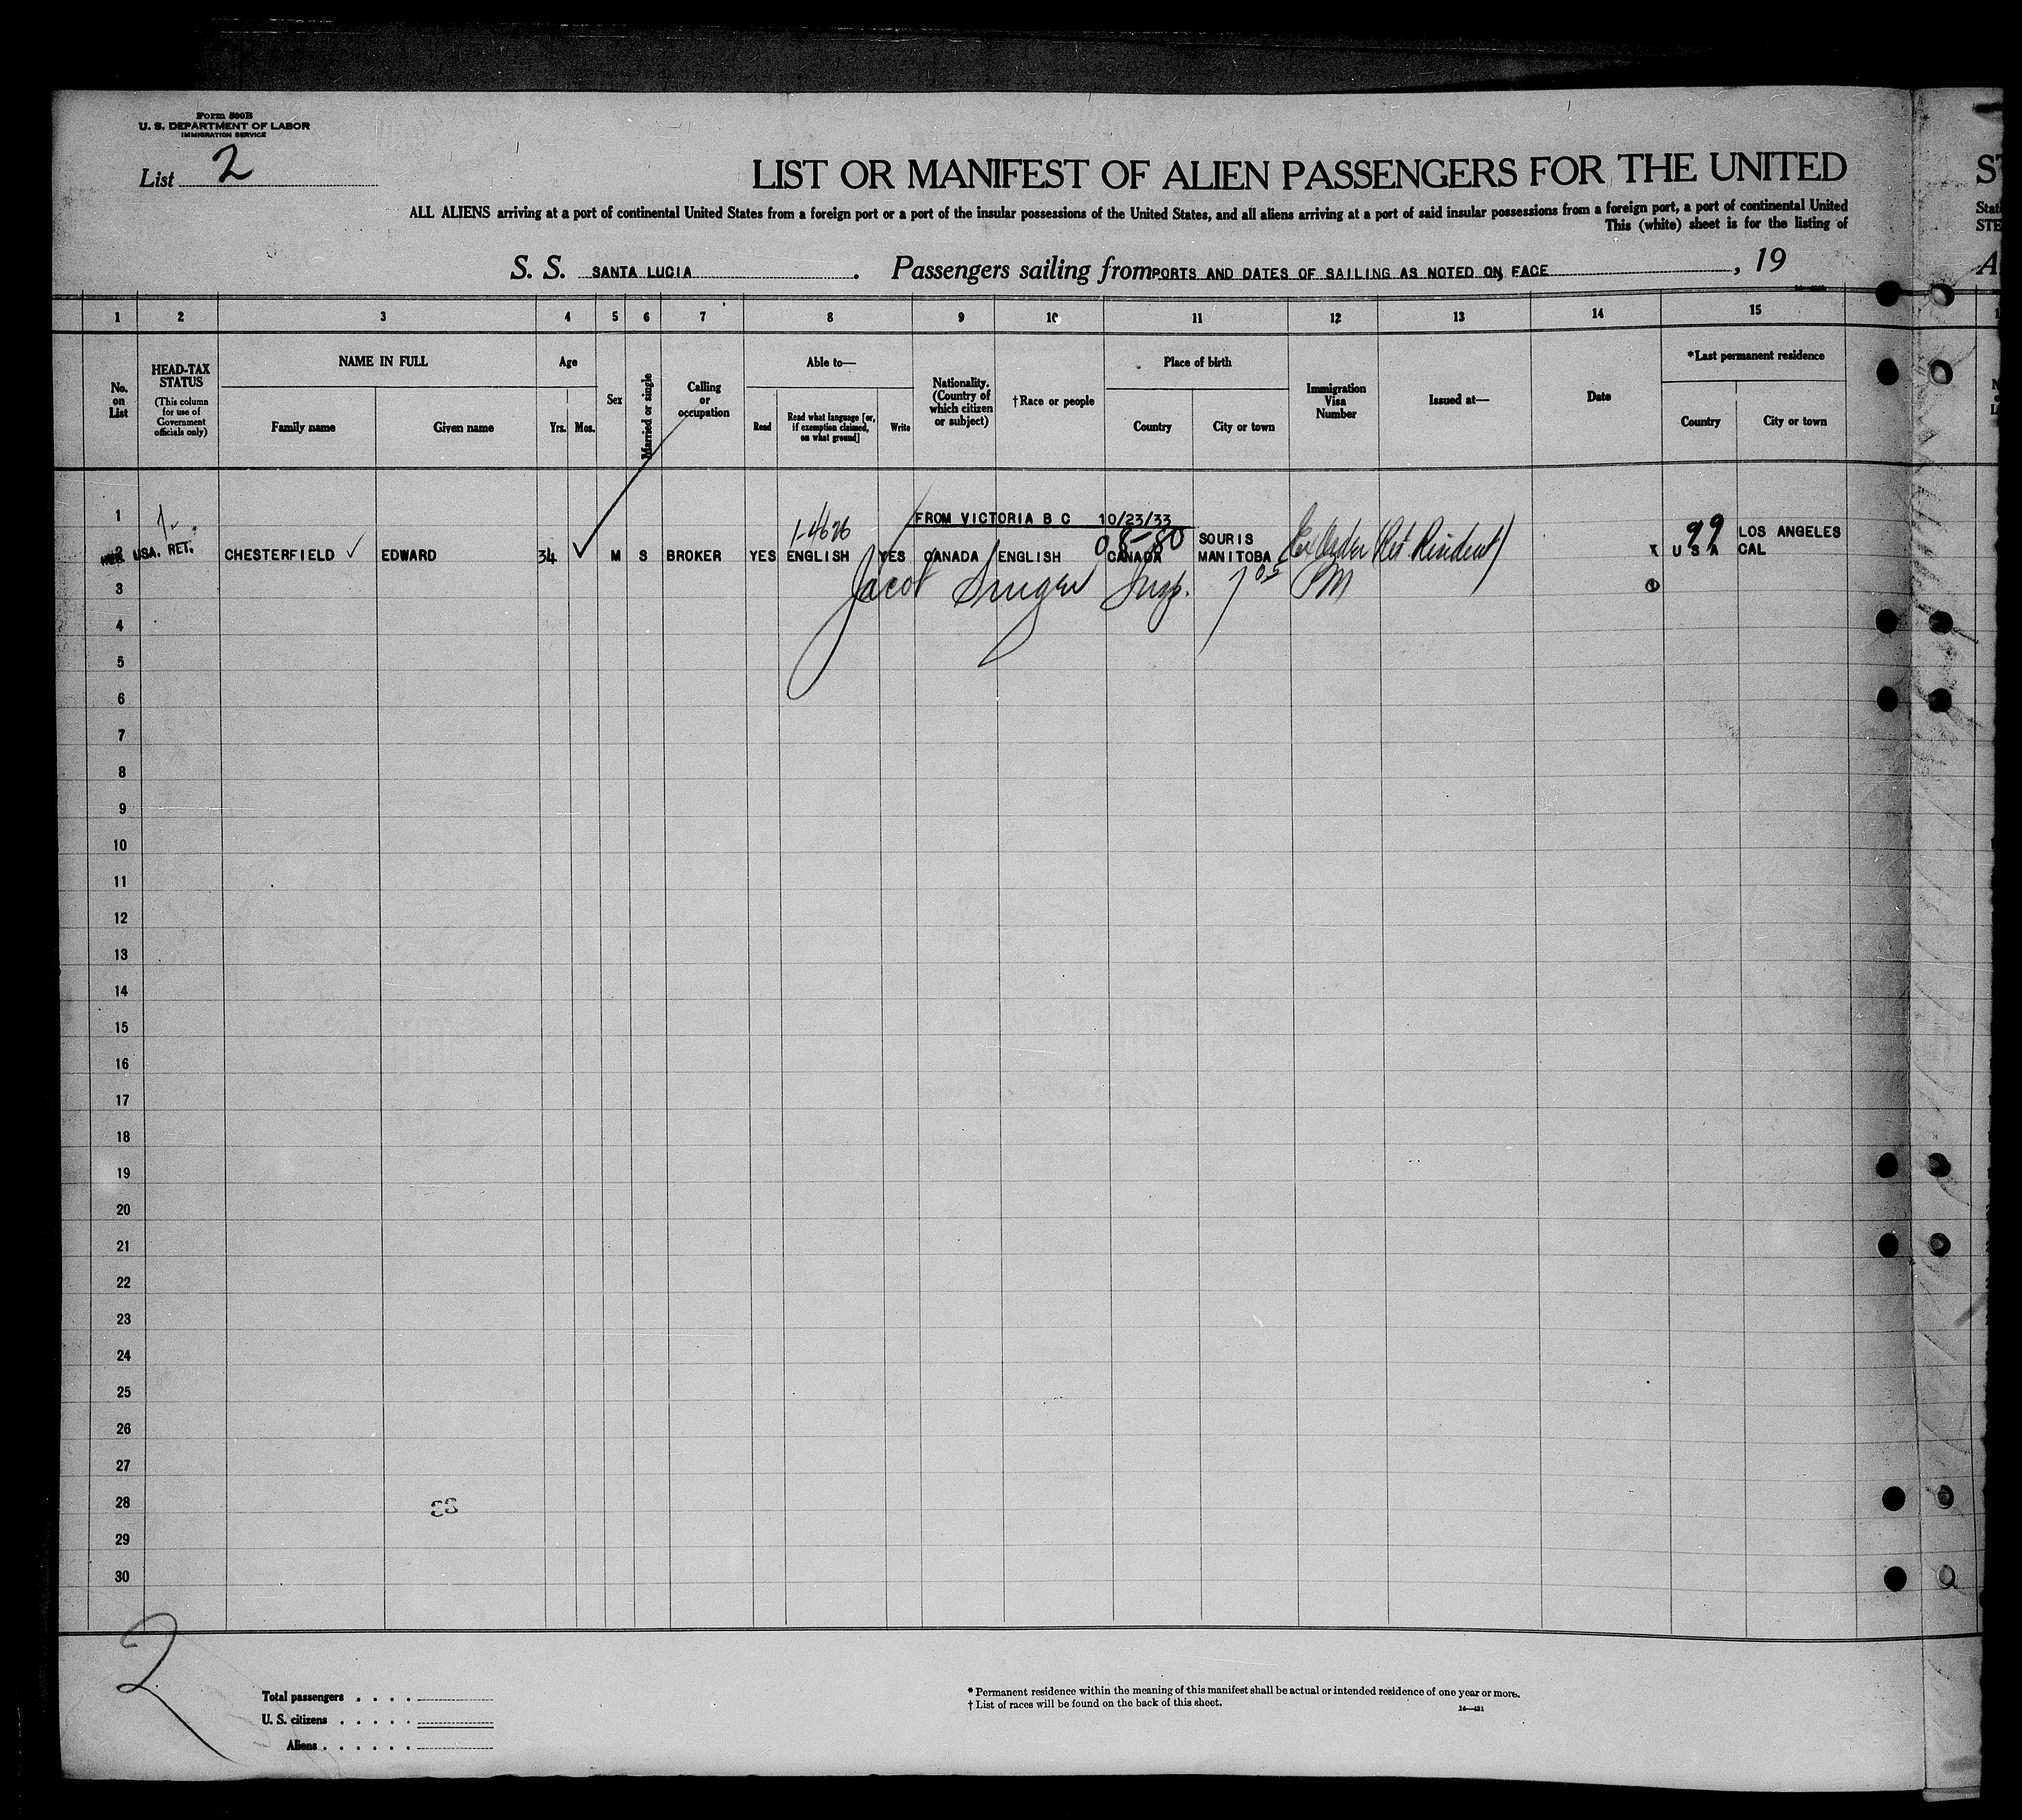 Form 500B
U. S. DEPARTMENT OF LABOR
IMMIGRATION SERVICE
List 2
LIST OR MANIFEST OF ALIEN PASSENGERS FOR THE UNITED
ALL ALIENS arriving at a port of continental United States from a foreign port or a port of the insular possessions of the United States, and all aliens arriving at a port of said insular possessions from a foreign port, a port of continental United
This (white) sheet is for the listing of
S. S. SANTA LUCIA. Passengers sailing from PORTS AND DATES OF SAILING AS NOTED ON FACE, 19
1 2 3 4 5 6 7 8 9 10 11 12 13 14 15
No. on List
HEAD-TAX STATUS
(This column for use of Government officials only)
NAME IN FULL
Family name
Given name
Age
Yrs. Mos.
Sex
Married or single
Calling or occupation
Able to—
Read
Read what language [or, if exemption claimed, on what ground]
Write
Nationality. (Country of which citizen or subject)
†Race or people
Place of birth
Country
City or town
Immigration Visa Number
Issued at—
Date
*Last permanent residence
Country
City or town
1 FROM VICTORIA B C 10/23/33
1-4676 08-80 SOURIS 99 LOS ANGELES
2 USA. RET. CHESTERFIELD ✓ EDWARD 34 ✓ M S BROKER YES ENGLISH YES CANADA ENGLISH CANADA MANITOBA Ex Order (Ret Resident) X U S A CAL
3 Jacob Insp. 7 05 PM
4
5
6
7
8
9
10
11
12
13
14
15
16
17
18
19
20
21
22
23
24
25
26
27
28
29
30
2
Total passengers . . . .
U. S. citizens . . . . .
Aliens . . . . . .
* Permanent residence within the meaning of this manifest shall be actual or intended residence of one year or more.
† List of races will be found on the back of this sheet.